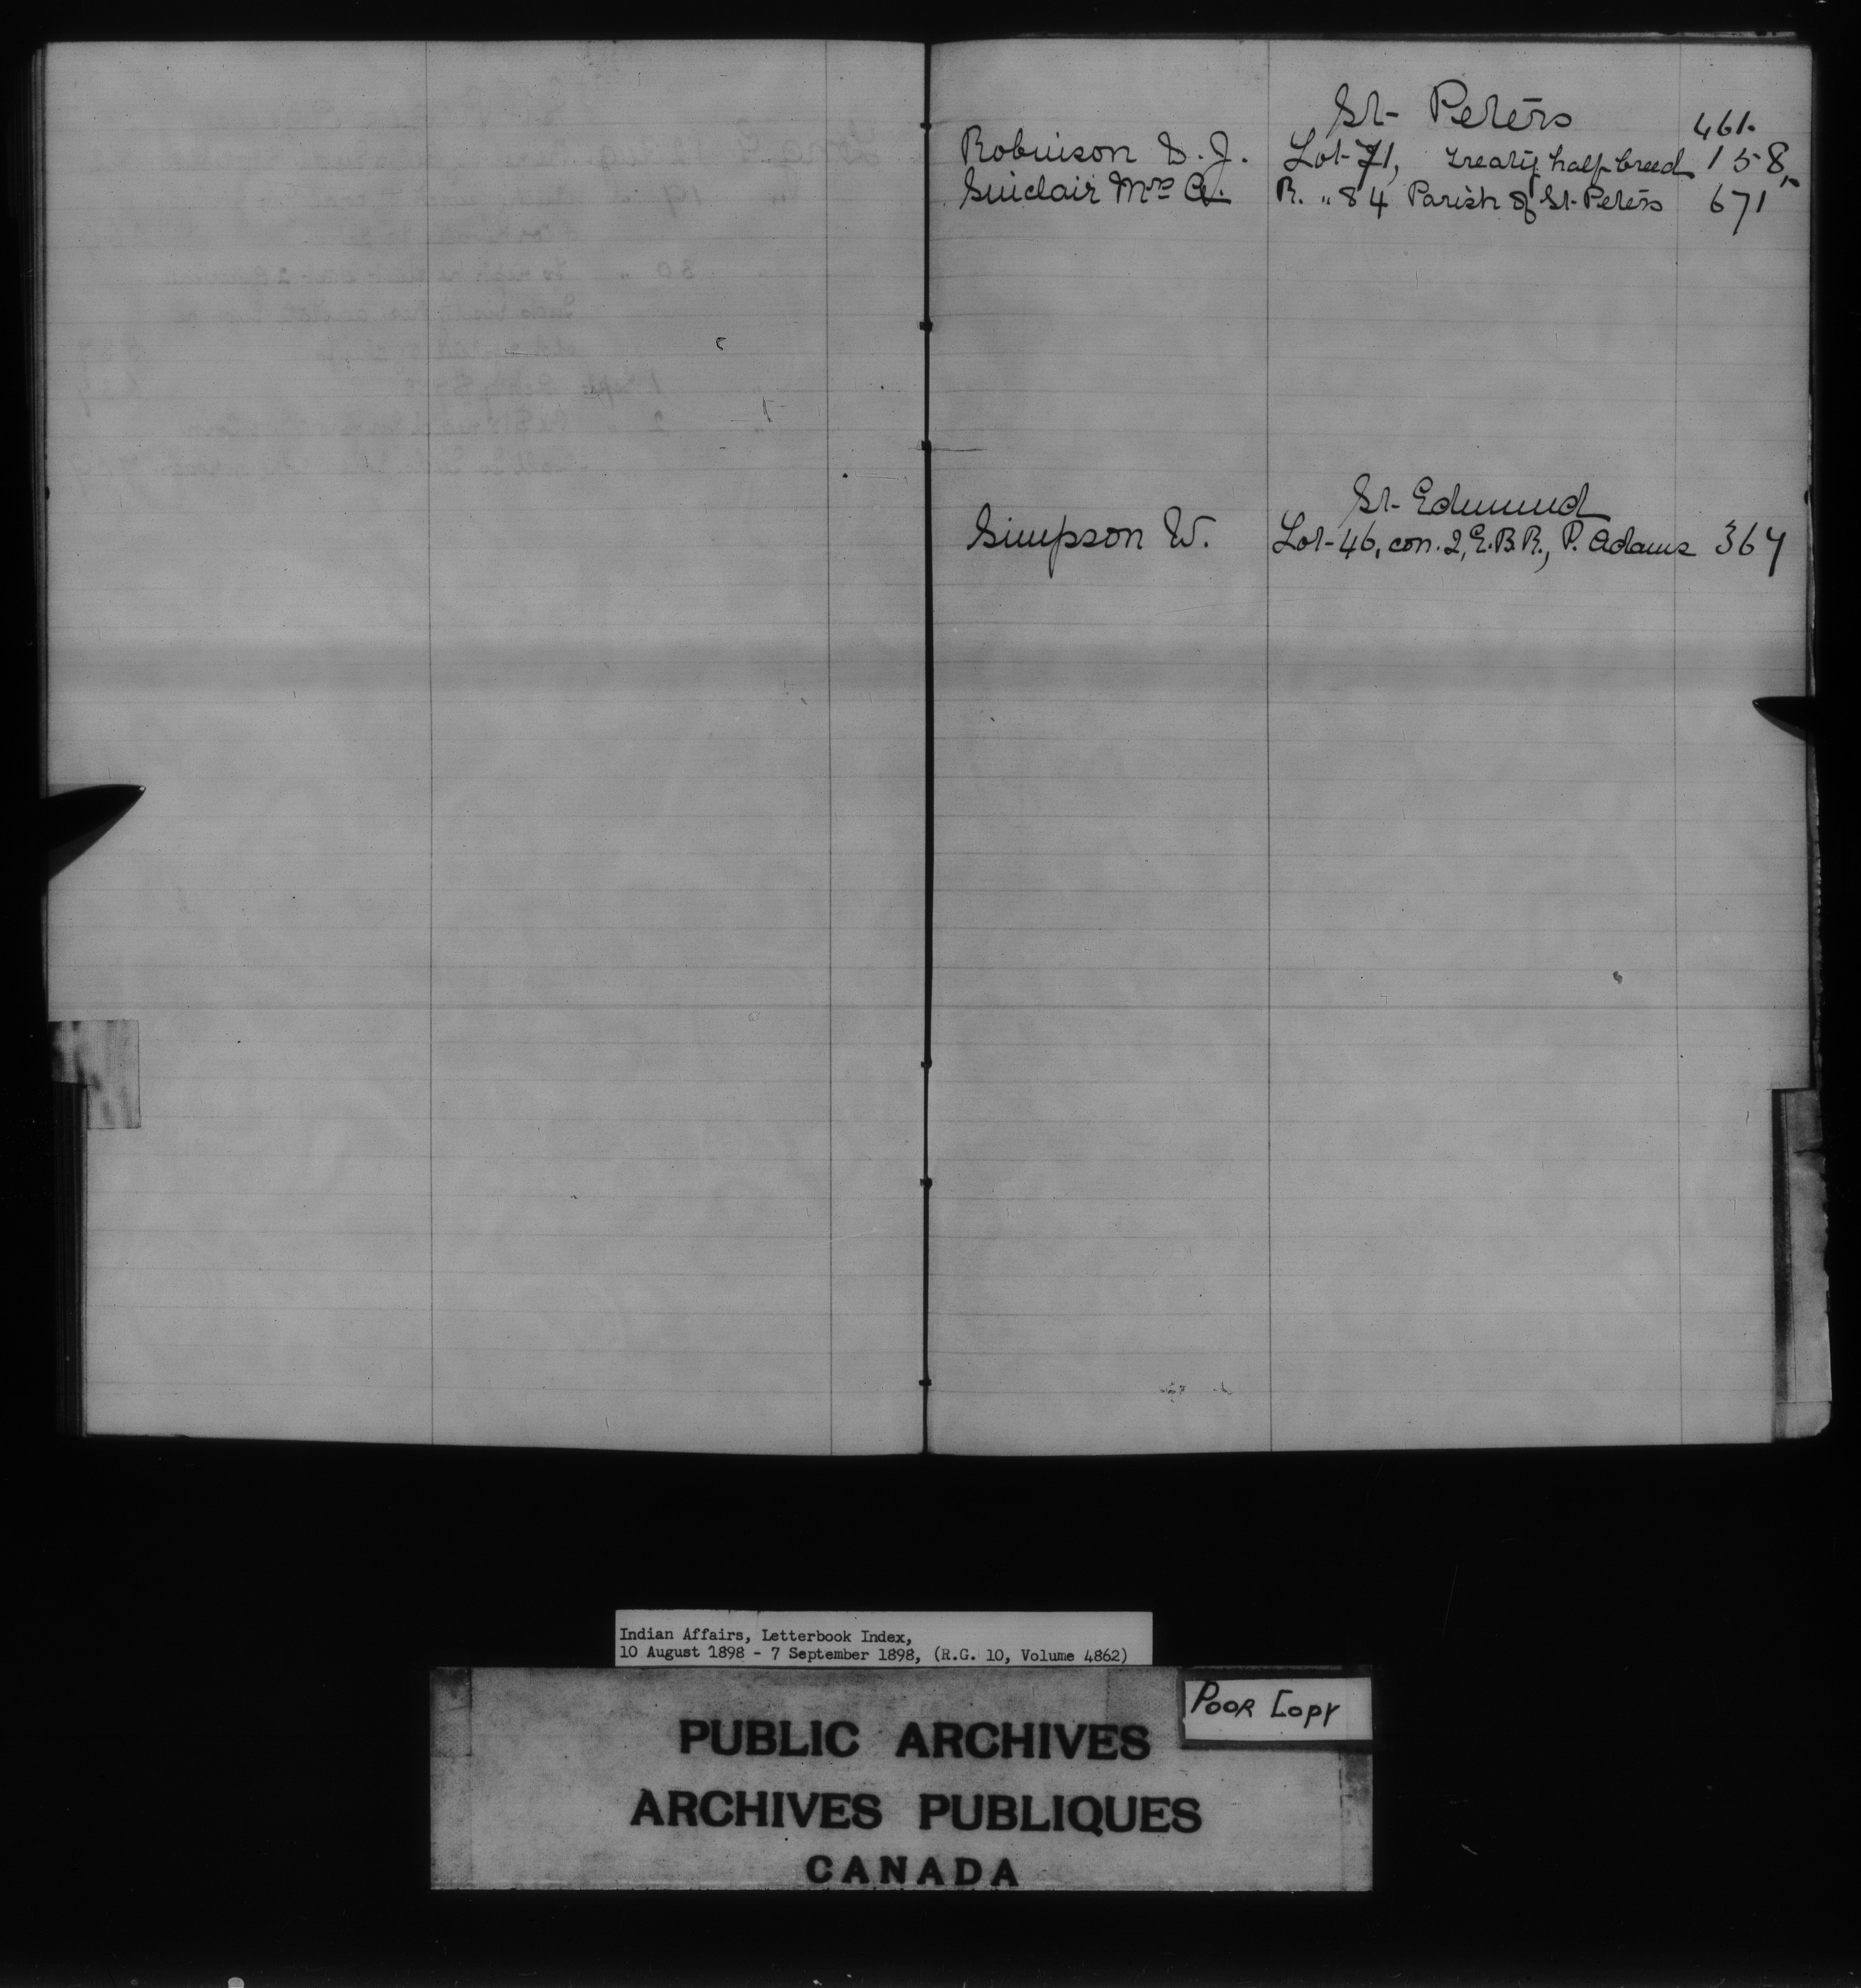 St. Peter's
461.
Robinson D. J. Lot 71, treaty half breed 158,
Sinclair Mrs A. R. " 84 Parish of St. Peters 671
St. Edmund
Simpson W. Lot 46, con. 2, E.B.R., P. Adams 367
Indian Affairs, Letterbook Index,
10 August 1898 - 7 September 1898, (R.G. 10, Volume 4862)
POOR COPY
PUBLIC ARCHIVES
ARCHIVES PUBLIQUES
CANADA